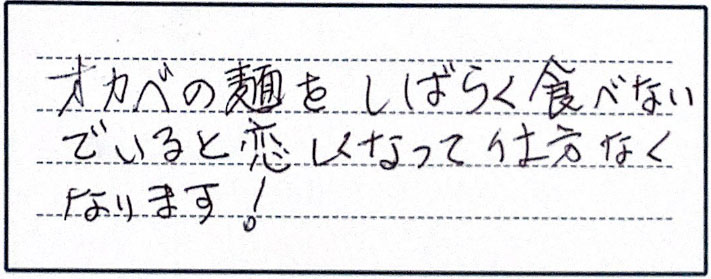 オカベの麺を しばらく食べない
でいると恋しくなって仕方なく
なります!